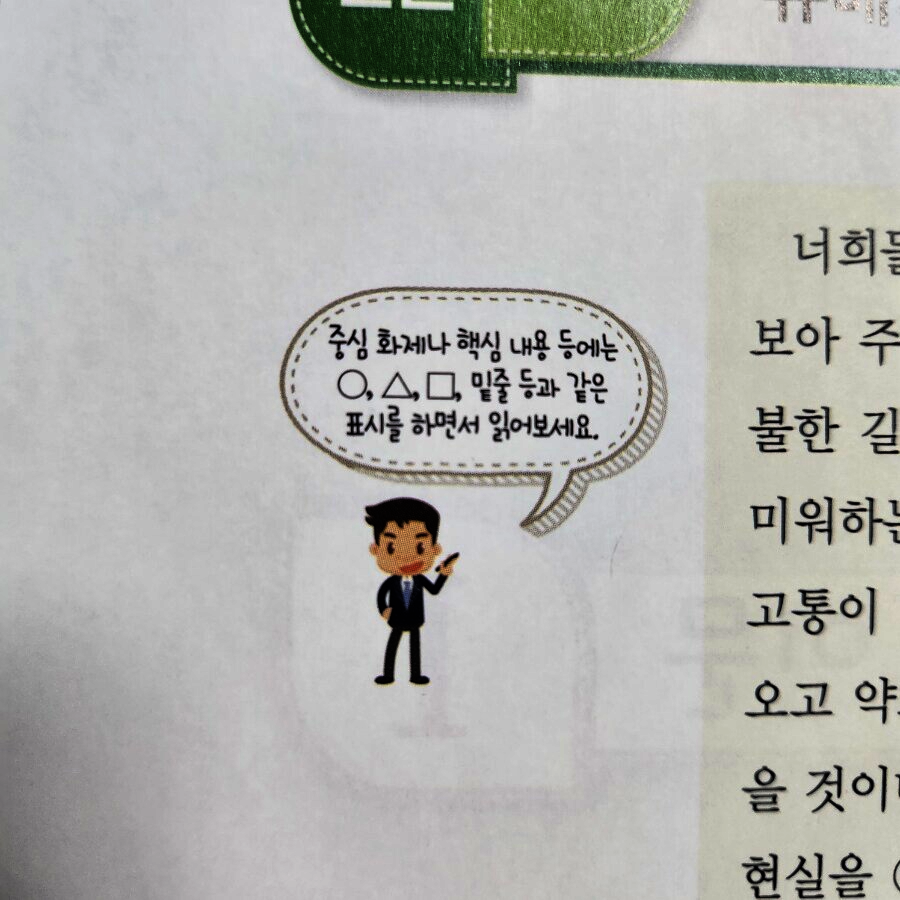 중심 화제나 핵심 내용 등에는
○, △, □, 밑줄 등과 같은
표시를 하면서 읽어보세요.
너희들
보아 주
불한 길
미워하는
고통이
오고 약
을 것이
현실을